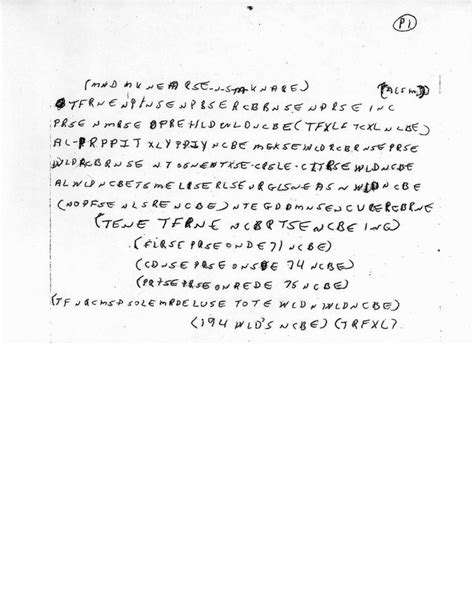 P1
(MND MKNEARSE-N-S-M-KNARE) (ACSM)
TFRNENPINSENPBSERCBBNSENPRSEINC
PRSENMRSEOPREHLDWLDNCBE(TFXLFTCXLNCBE)
AL-PRPPITXLYPPIYNCBE MGKSEWLDRCBRNSEPRSE
WLDRCBRNSE NTSGNENTXSE-CRSLE-CITRSEWLDNCBE
ALWLDNCBETSMELRSERLSEURGLSNEASNWLDNCBE
(NOPFSENLSRENCBE)NTEGDDMNSENCURERCBRNE
(TENE TFRNE NCBRTSENCBEING)
(FLRSEPRSEONDE71NCBE)
(CDNSEPRSEONSDE74NCBE)
(PRTSEPRSEONREDE75NCBE)
(TFNRCMSPSOLEMRDELUSE TOTE WLDNWLDNCBE)
(194WLD'SNCBE)(TRFXL)